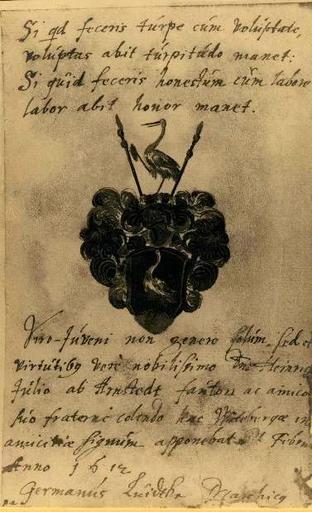 Si qd feceris túrpe cúm voluptate,
voluptas abit túrpitúdo manet:
Si qúid feceris honestúm cúm labore
labor abit honor manet.
Viro-Júveni non genere solùm, sed et
virtútibq verè nobilissimo Dn. Heinrico
Júlio ab Arnstedt fautori ac amico
súo fraternè colendo hac Witebergæ in
amicitiæ signúm apponebat
Anno 1612
Germanús Lúidthe